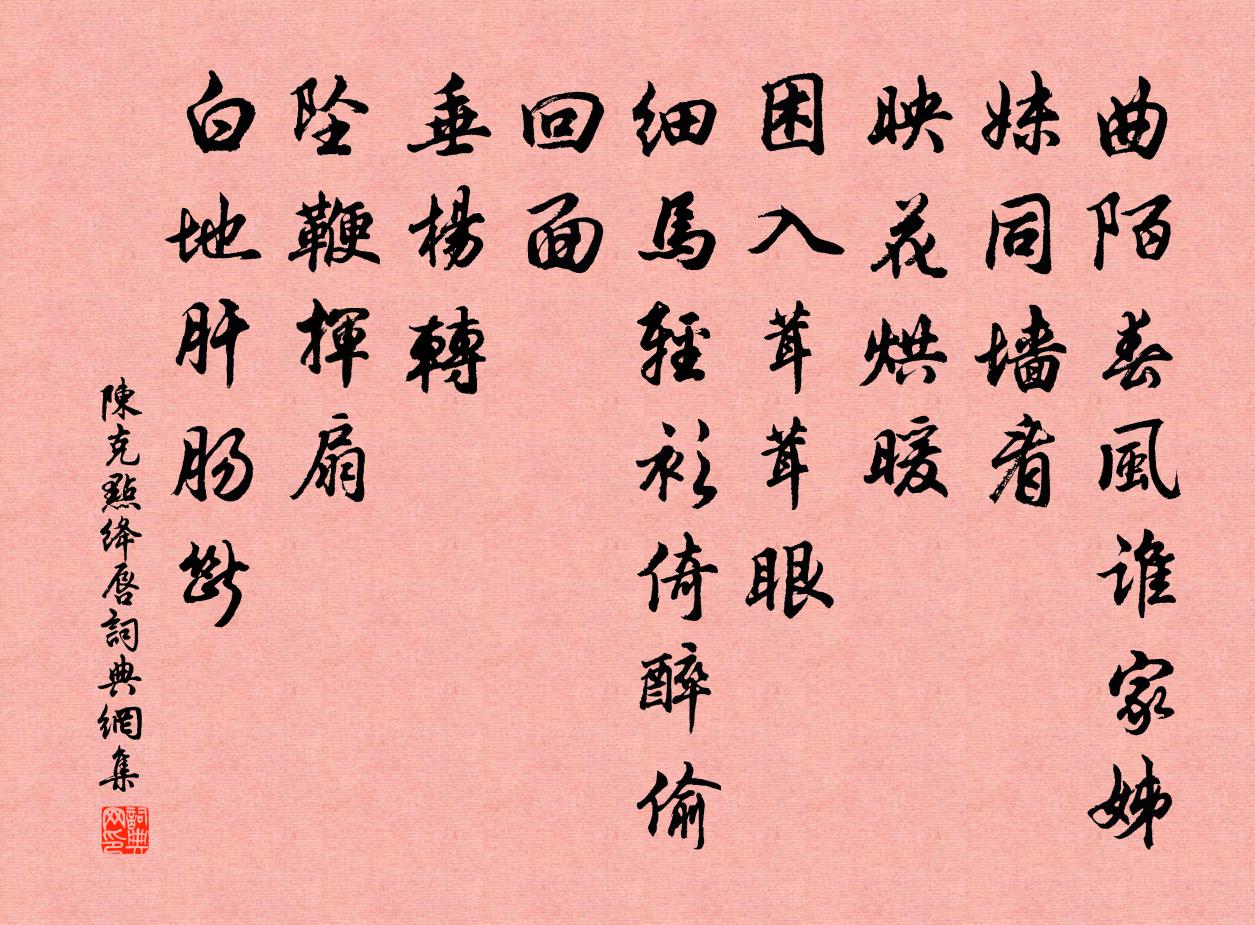 曲陌春風谁家姊
妹同墙看
映花烘暖
困入茸茸眼
細馬輕衫倚醉偷
回面
垂楊轉
坠鞭揮扇
白地肝肠斷
陳克點绛唇詞典網集
詞典网印